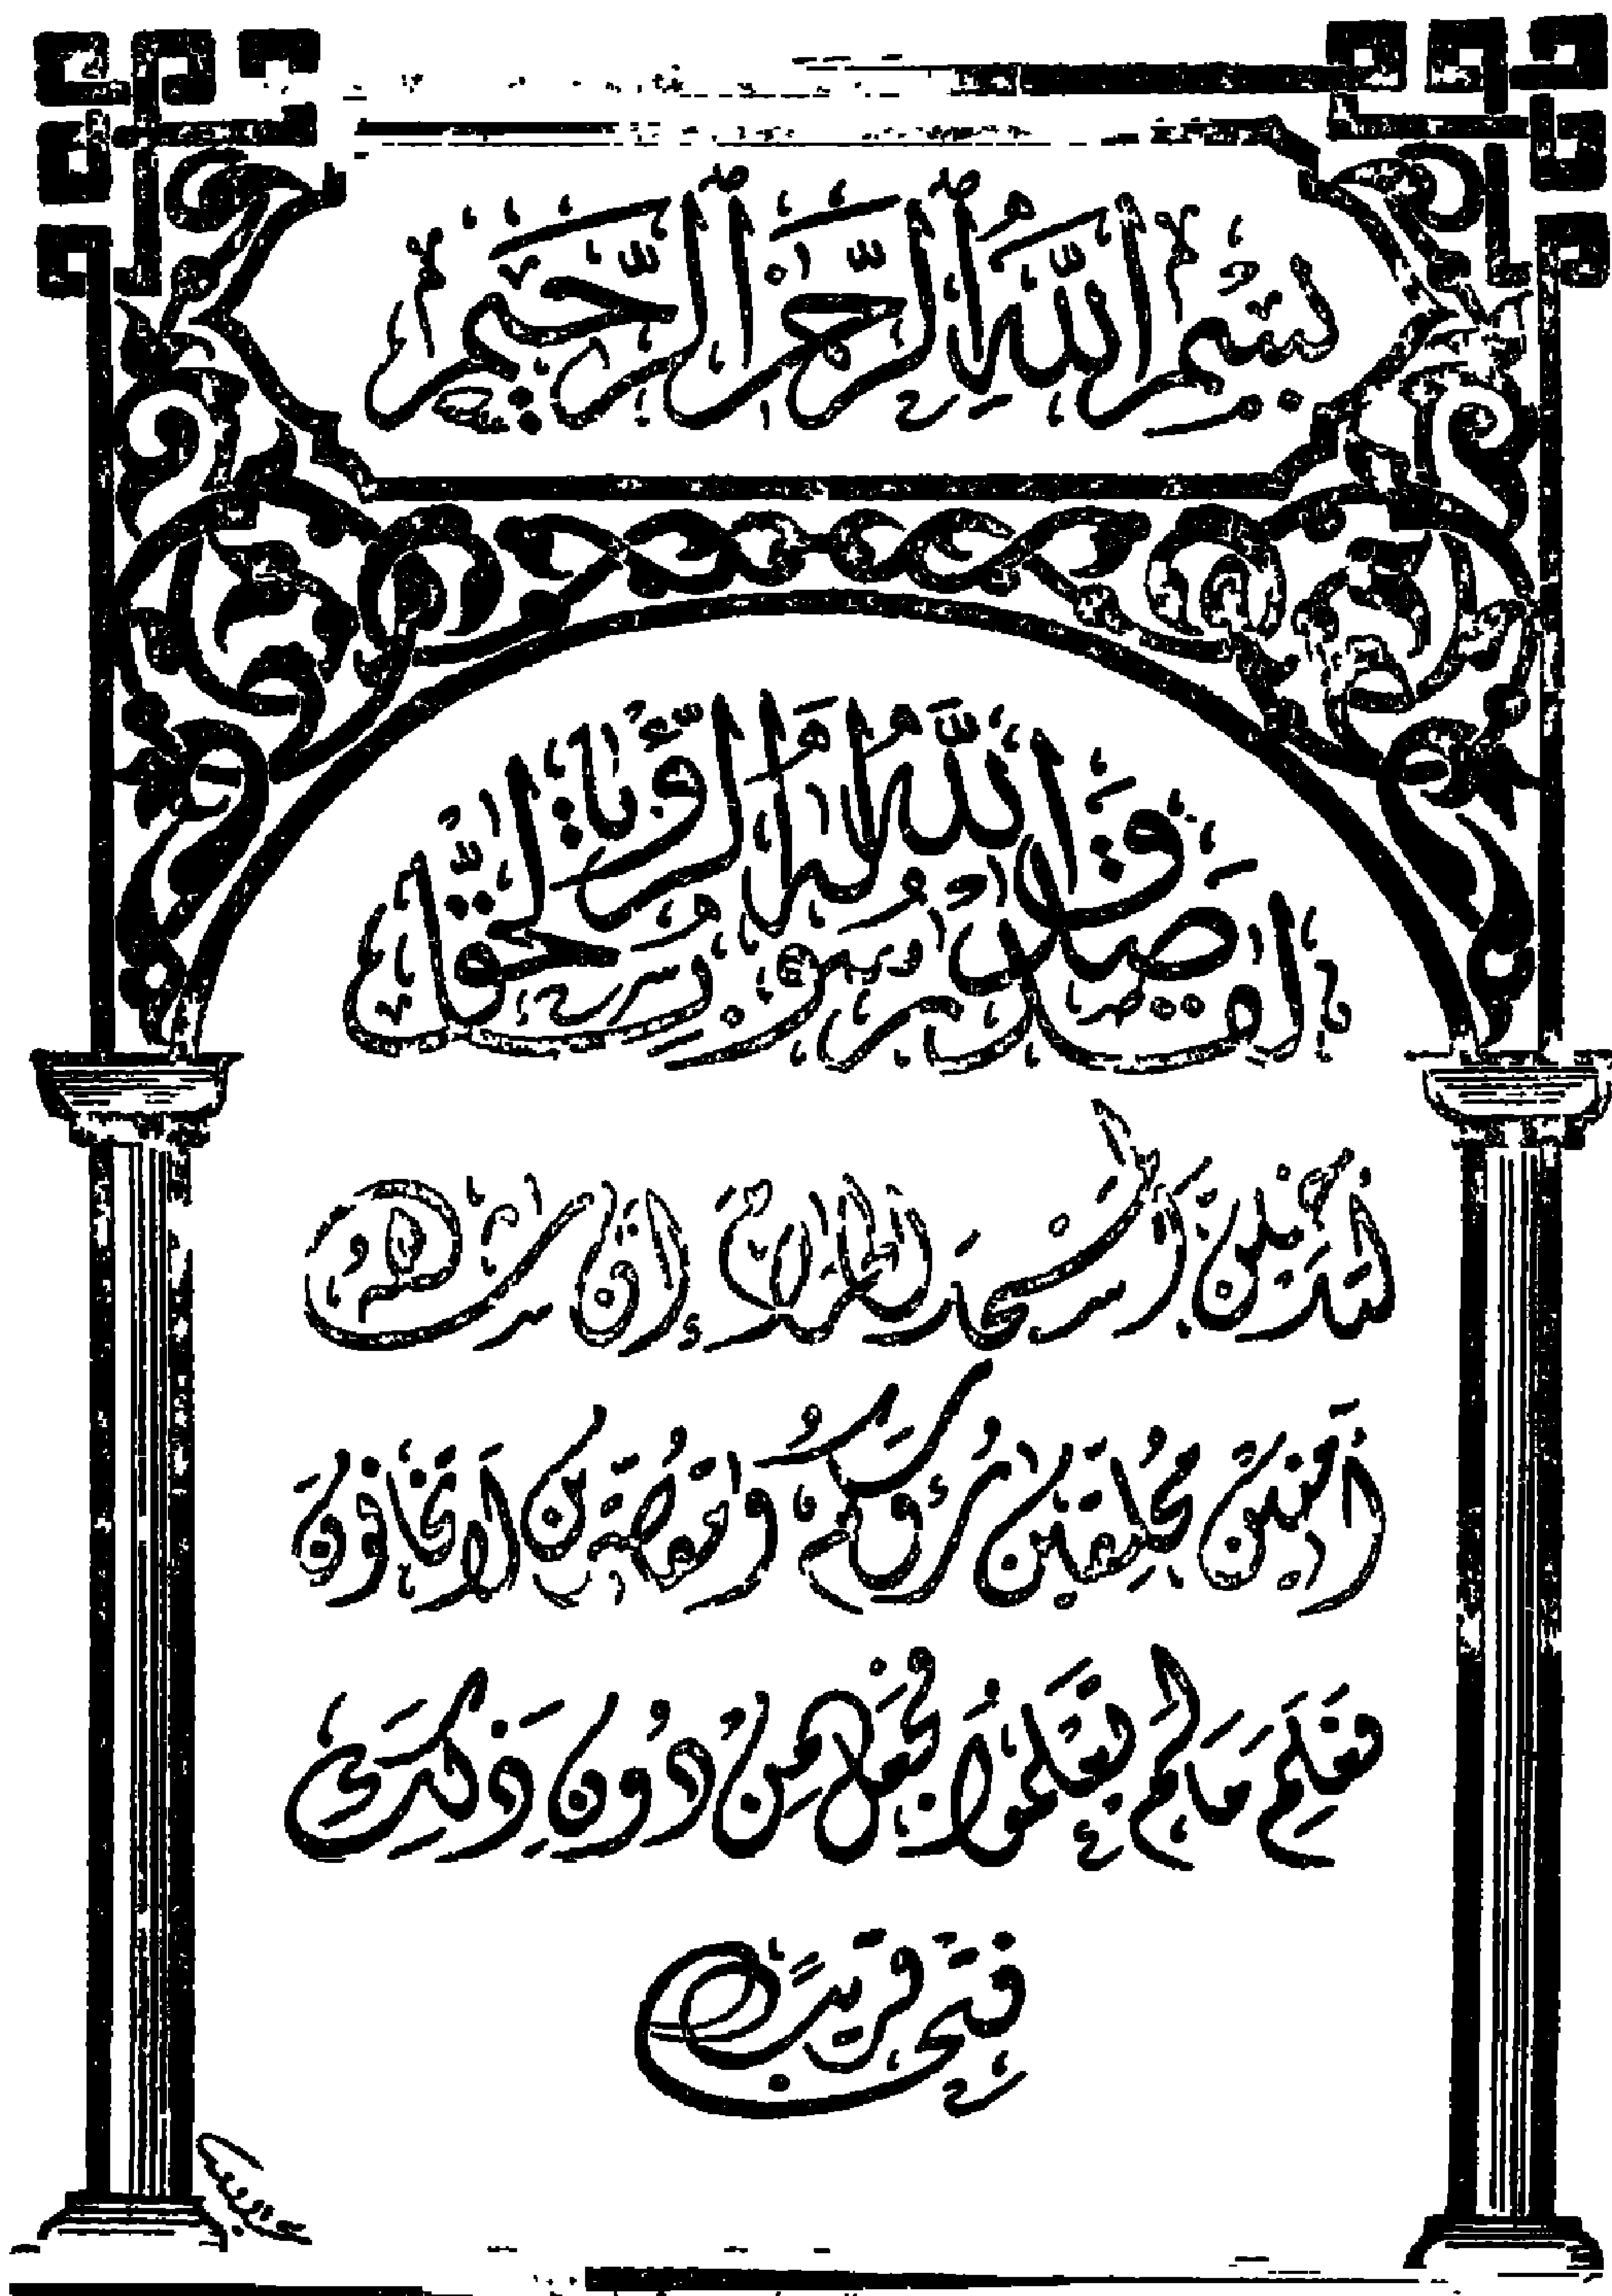 بِسْمِ اللَّهِ الرَّحْمَنِ الرَّحِيمِ
لَقَدْ صَدَقَ اللَّهُ رَسُولَهُ الرُّؤْيَا بِالْحَقِّ
لَتَدْخُلُنَّ الْمَسْجِدَ الْحَرَامَ إِنْ شَاءَ اللَّهُ
آمِنِينَ مُحَلِّقِينَ رُءُوسَكُمْ وَمُقَصِّرِينَ لَا تَخَافُونَ
فَعَلِمَ مَا لَمْ تَعْلَمُوا فَجَعَلَ مِنْ دُونِ ذَلِكَ
فَتْحًا قَرِيبًا